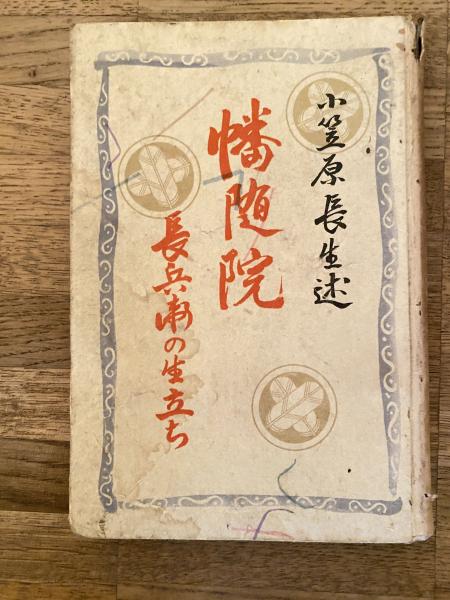 小笠原長生述
幡随院
長兵衛の生立ち